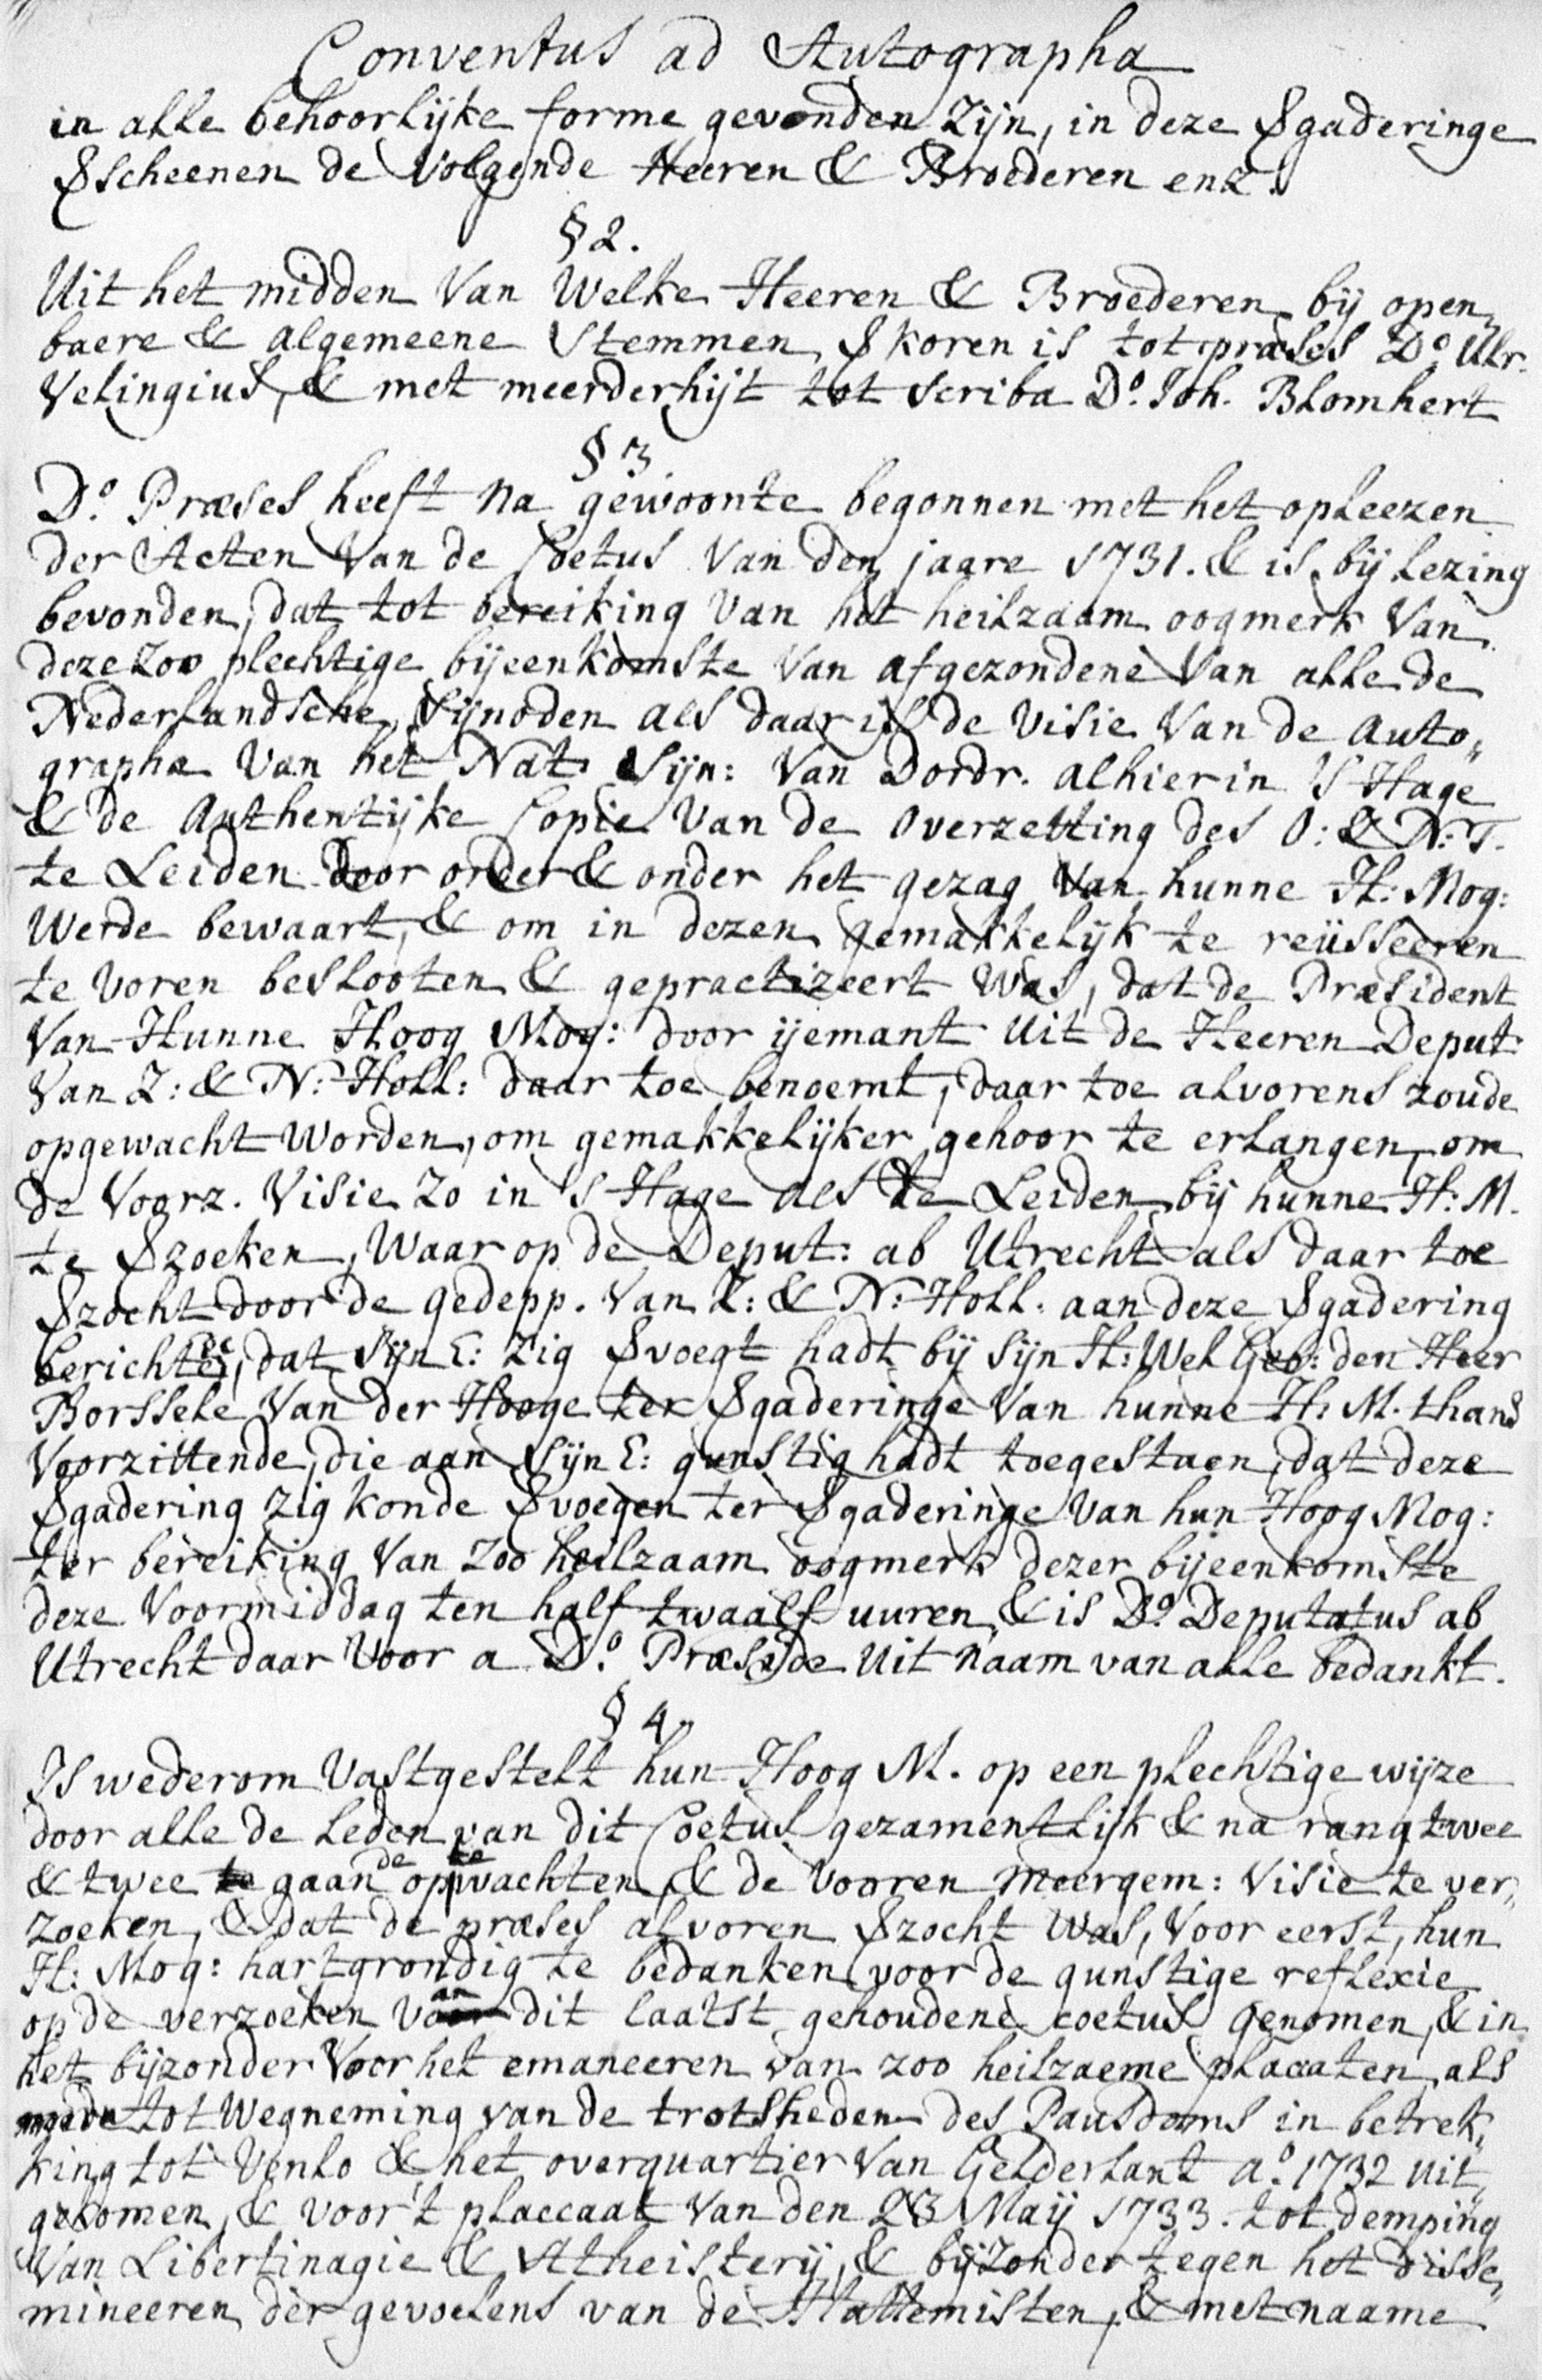 Conventus ad Autographa
in alle behoorlijke forme gevonden zijn, in deze §gaderinge
§scheenen de Volgende Heeren & Broederen enz.
§ 2.
Uit het midden Van Welke Heeren & Broederen, bij open„
baere & algemeene Stemmen, §koren is tot præses D.º Ulr.
Velingius, & met meerderhijt tot Scriba D.º Joh. Blomhert
§ 3
D.º Præses heeft na gewoonte begonnen met het opleezen
der Acten Van de Coetus Van den jaare 1731. & is bij Lezing
bevonden, dat tot bereiking Van het heilzaam oogmerk Van
deze zoo plechtige bijeenkomste Van afgezondene Van alle de
Nederlandsche Sijnoden als daar is de Visie Van de Auto„
grapha Van het Nat: Sijn: Van Dordr. alhier in 'S Hage
& de Authentijke Copie Van de Overzetting des O: & N: T.
te Leiden door order & onder het gezag Van hunne H: Mog:
Werde bewaart, & om in dezen gemakkelijk te reüsseeren
te voren beslooten & gepractizeert Was, dat de Præsident
Van Hunne Hoog Mog: door ijemant Uit de Heeren Deput:
Van Z: & N: Holl: daar toe benoemt, daar toe alvorens zoude
opgewacht Worden, om gemakkelijker gehoor te erlangen, om
de Voorz. Visie zo in 'S Hage als te Leiden bij hunne H: M.
te §zoeken, Waar op de Deput: ab Utrecht als daar toe
§zocht door de gedepp. Van Z: & N: Holl: aan deze §gadering
berichtede, dat Sijn E: zig §voegt hadt bij Sijn H: Wel Geb: den Heer
Borssele Van der Hooge ter §gaderinge Van hunne H: M. thans
Voorzittende, die aan Sijn E: gunstig hadt toegestaen, dat deze
§gadering zig konde §voegen ter §gaderinge Van hun Hoog Mog:
ter bereiking Van zoo heilzaam oogmerk dezer bijeenkomste
deze Voormiddag ten half twaalf uuren, & is D.º Deputatus ab
Utrecht daar Voor a D.º Præside Uit naam van alle bedankt.
§ 4.
Is wederom Vastgestelt hun Hoog M. op een plechtige wijze
door alle de Leden van dit Coetus gezamentlijk & na rang twee
& twee te gaande op te wachten, & de Vooren meergem: Visie te ver„
zoeken, & dat de præses alvoren §zocht Was, Voor eerst, hun
H: Mog: hartgrondig te bedanken voor de gunstige reflexie
op de verzoeken van dit laatst gehoudene coetus genomen, & in
het bijzonder Voor het emaneeren van zoo heilzaeme placaten, als
mede tot Wegneming van de trotsheden des Pausdoms in betrek„
king tot Venlo & het overquartier Van Gelderlant a.º 1732 uit„
gekomen, & voor 't placcaat Van den 28 Maij 1733. tot demping
Van Libertinagie & Atheisterij, & bijzonder tegen het disse„
mineeren der gevoelens van de Hattemisten, & met naame